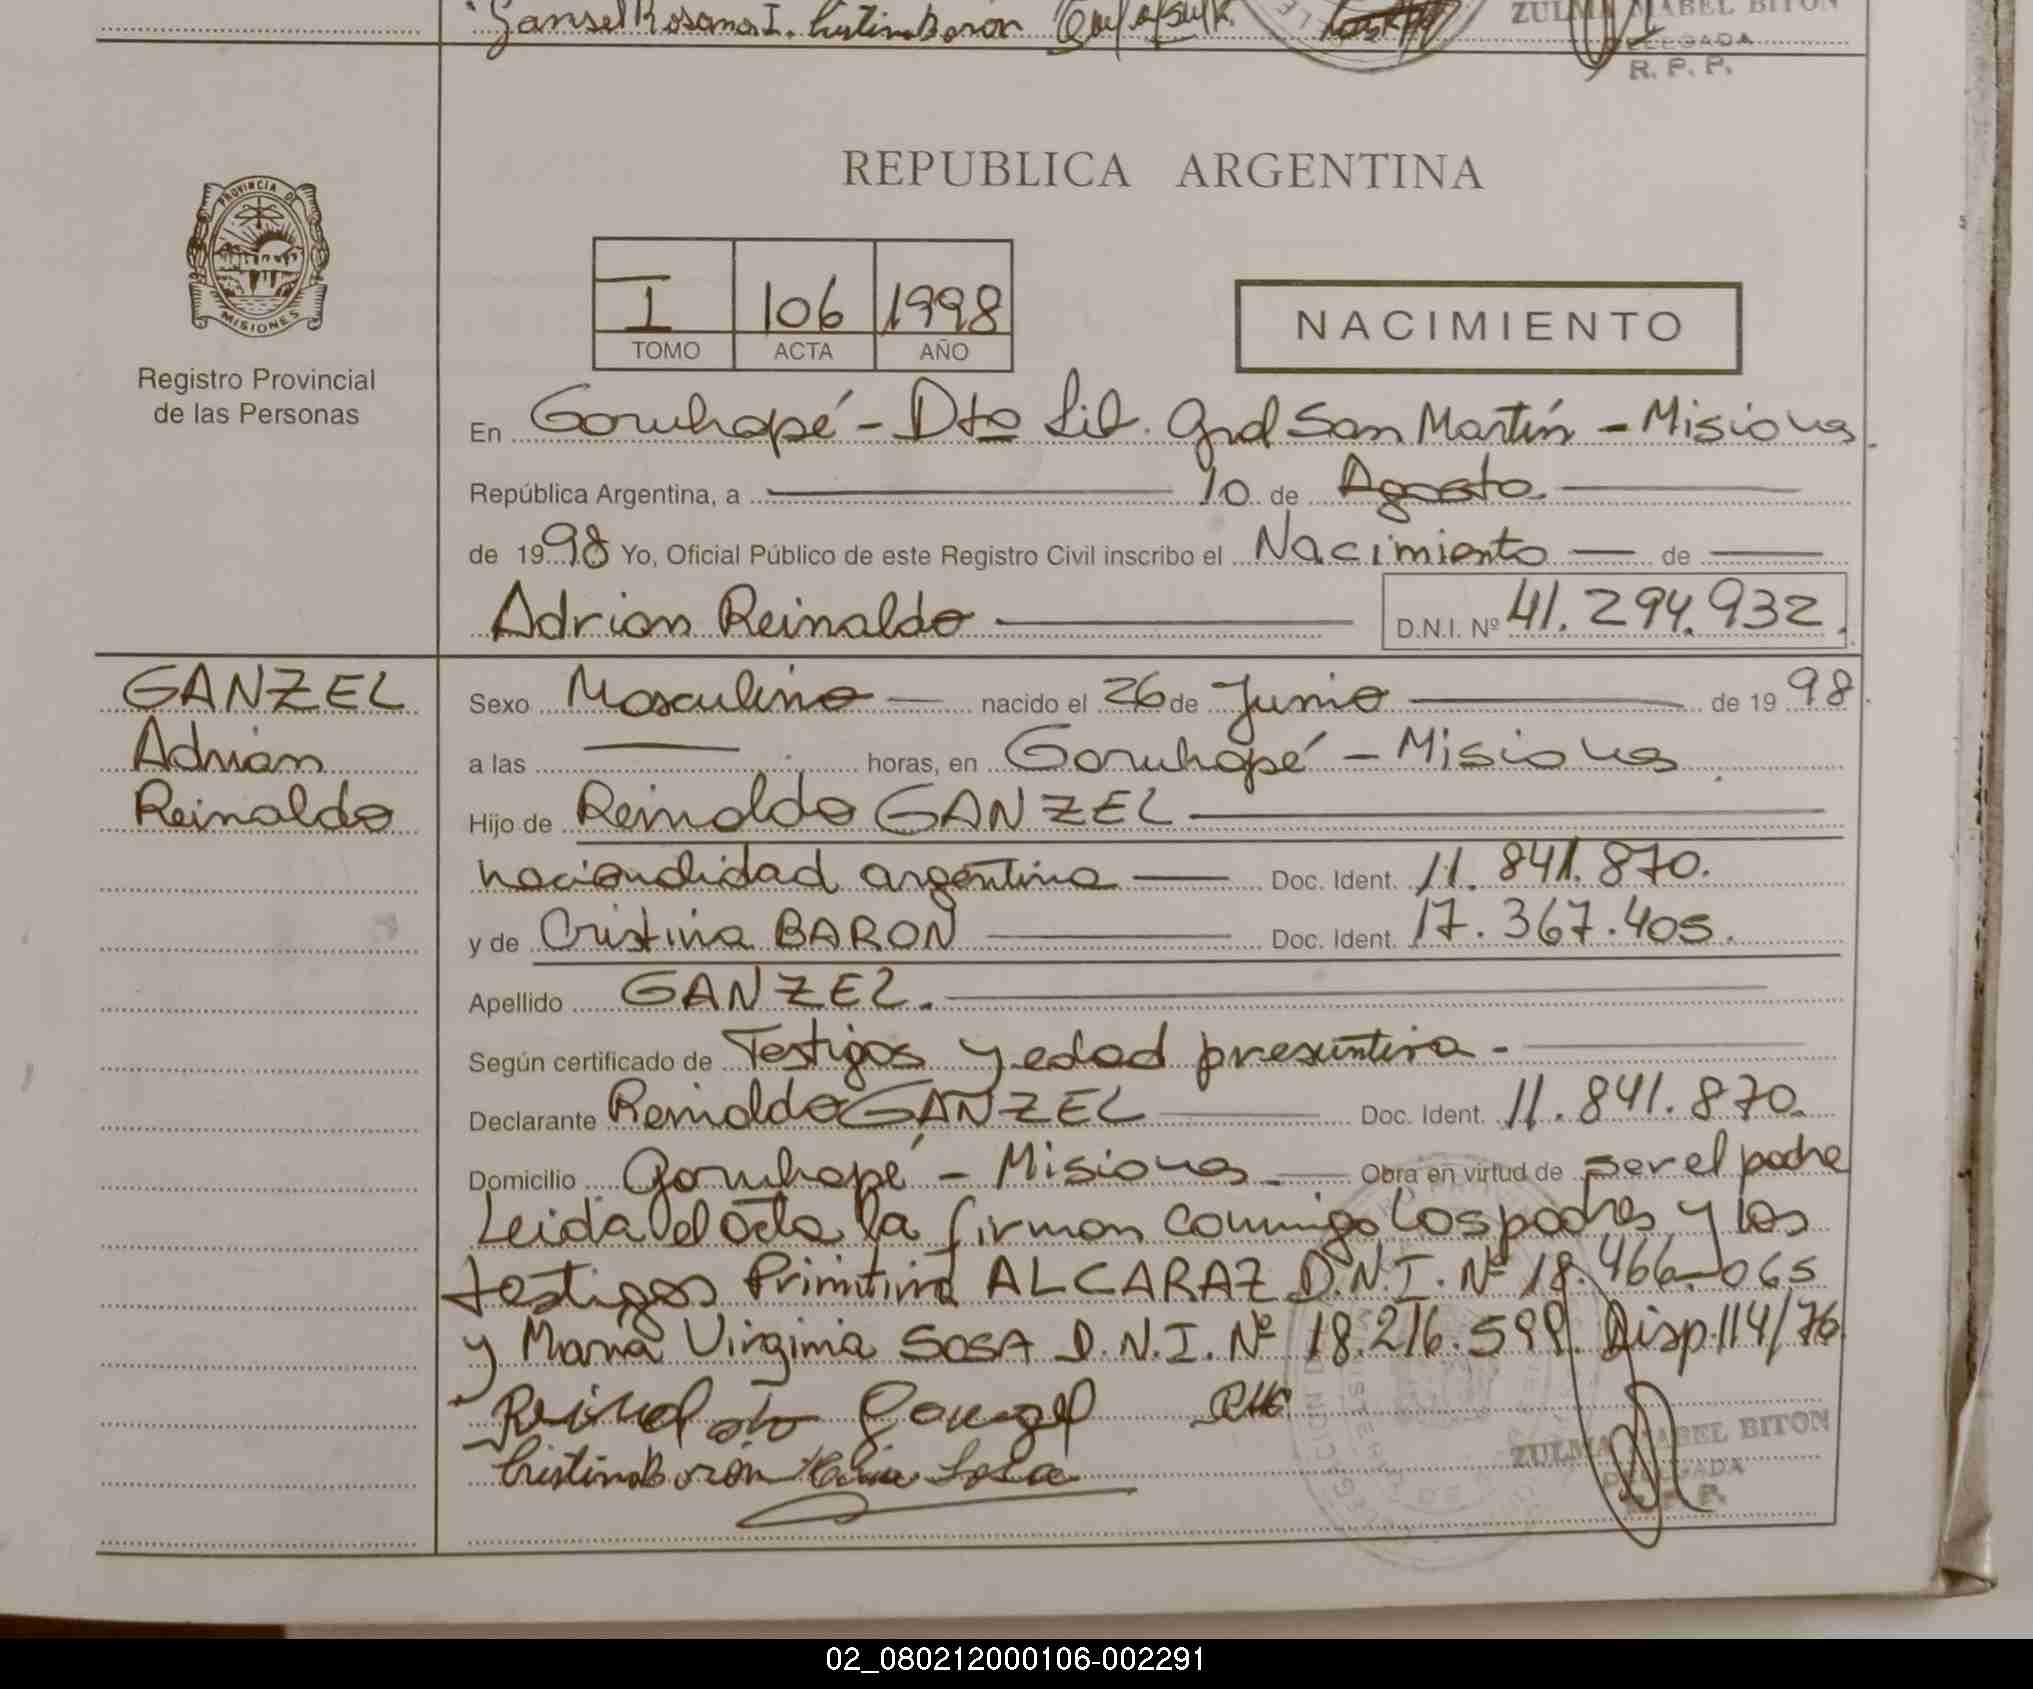 Gansel Rosana I. Cristina Baron
ZULMA MABEL BITON
DELEGADA
R. P. P.
PROVINCIA DE
MISIONES
Registro Provincial
de las Personas
REPUBLICA ARGENTINA
I 106 1998
TOMO ACTA AÑO
NACIMIENTO
En Garuhapé - Dto Lib. Gral San Martín - Misiones.
República Argentina, a 10 de Agosto
de 1998 Yo, Oficial Público de este Registro Civil inscribo el Nacimiento de
Adrian Reinaldo D.N.I. Nº 41.294.932.
GANZEL
Adrián
Reinaldo
Sexo Masculino nacido el 26 de Junio de 1998.
a las horas, en Garuhapé - Misiones.
Hijo de Reinaldo GANZEL
nacionalidad argentina Doc. Ident. 11.841.870.
y de Cristina BARON Doc. Ident. 17.367.405.
Apellido GANZEL.
Según certificado de Testigos y edad presuntiva.-
Declarante Reinaldo GANZEL Doc. Ident. 11.841.870.
Domicilio Garuhapé - Misiones - Obra en virtud de ser el padre
Leida el acta la firman conmigo los padres y los
testigos Primitiva ALCARAZ D.N.I. Nº 18.466.065
y Maria Virginia SOSA D.N.I. Nº 18.216.599. Disp.114/76
Reinaldo Ganzel
Cristina Barón Maria Sosa
ZULMA MABEL BITON
DELEGADA
R. P. P.
02_080212000106-002291